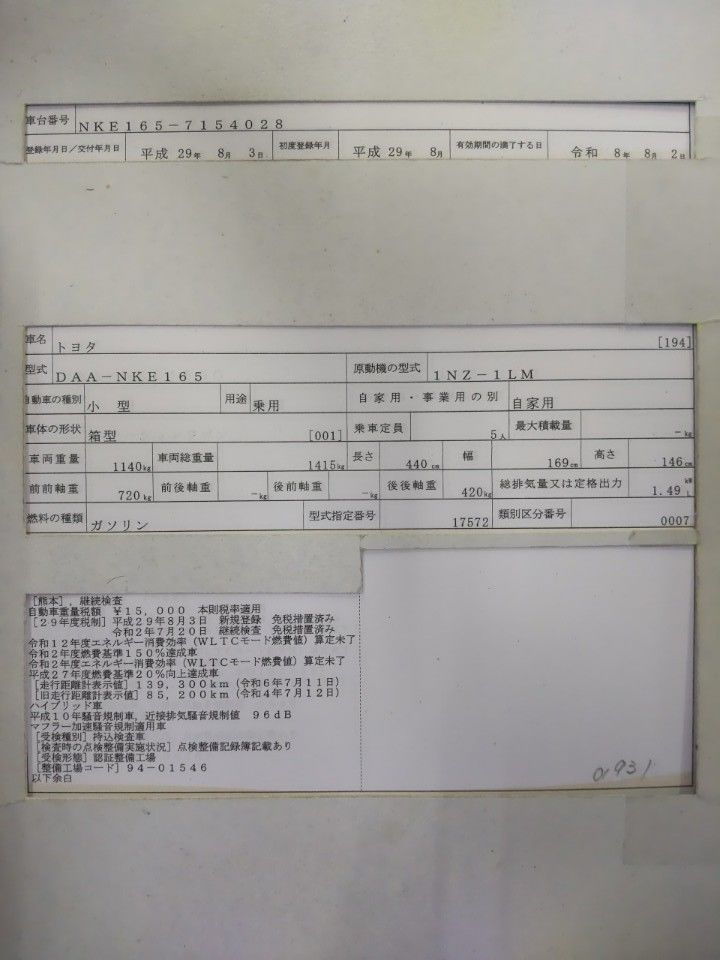 車台番号 NKE165-7154028
登録年月日/交付年月日 平成 29年 8月 3日 初度登録年月 平成 29年 8月 有効期間の満了する日 令和 8年 8月 2日
車名 トヨタ [194]
型式 DAA-NKE165 原動機の型式 1NZ-1LM
自動車の種別 小 型 用途 乗用 自家用・事業用の別 自家用
車体の形状 箱型 [001] 乗車定員 5人 最大積載量 -kg
車両重量 1140kg 車両総重量 1415kg 長さ 440cm 幅 169cm 高さ 146cm
前前軸重 720kg 前後軸重 -kg 後前軸重 -kg 後後軸重 420kg 総排気量又は定格出力 1.49 kW L
燃料の種類 ガソリン 型式指定番号 17572 類別区分番号 0007
[熊本],継続検査
自動車重量税額 ¥15,000 本則税率適用
[29年度税制]平成29年8月3日 新規登録 免税措置済み
令和2年7月20日 継続検査 免税措置済み
令和12年度エネルギー消費効率(WLTCモード燃費値)算定未了
令和2年度燃費基準150%達成車
令和2年度エネルギー消費効率(WLTCモード燃費値)算定未了
平成27年度燃費基準20%向上達成車
[走行距離計表示値]139,300km(令和6年7月11日)
[旧走行距離計表示値]85,200km(令和4年7月12日)
ハイブリッド車
平成10年騒音規制車,近接排気騒音規制値 96dB
マフラー加速騒音規制適用車
[受検種別]持込検査車
[検査時の点検整備実施状況]点検整備記録簿記載あり
[受検形態]認証整備工場
[整備工場コード]94-01546
以下余白
0931